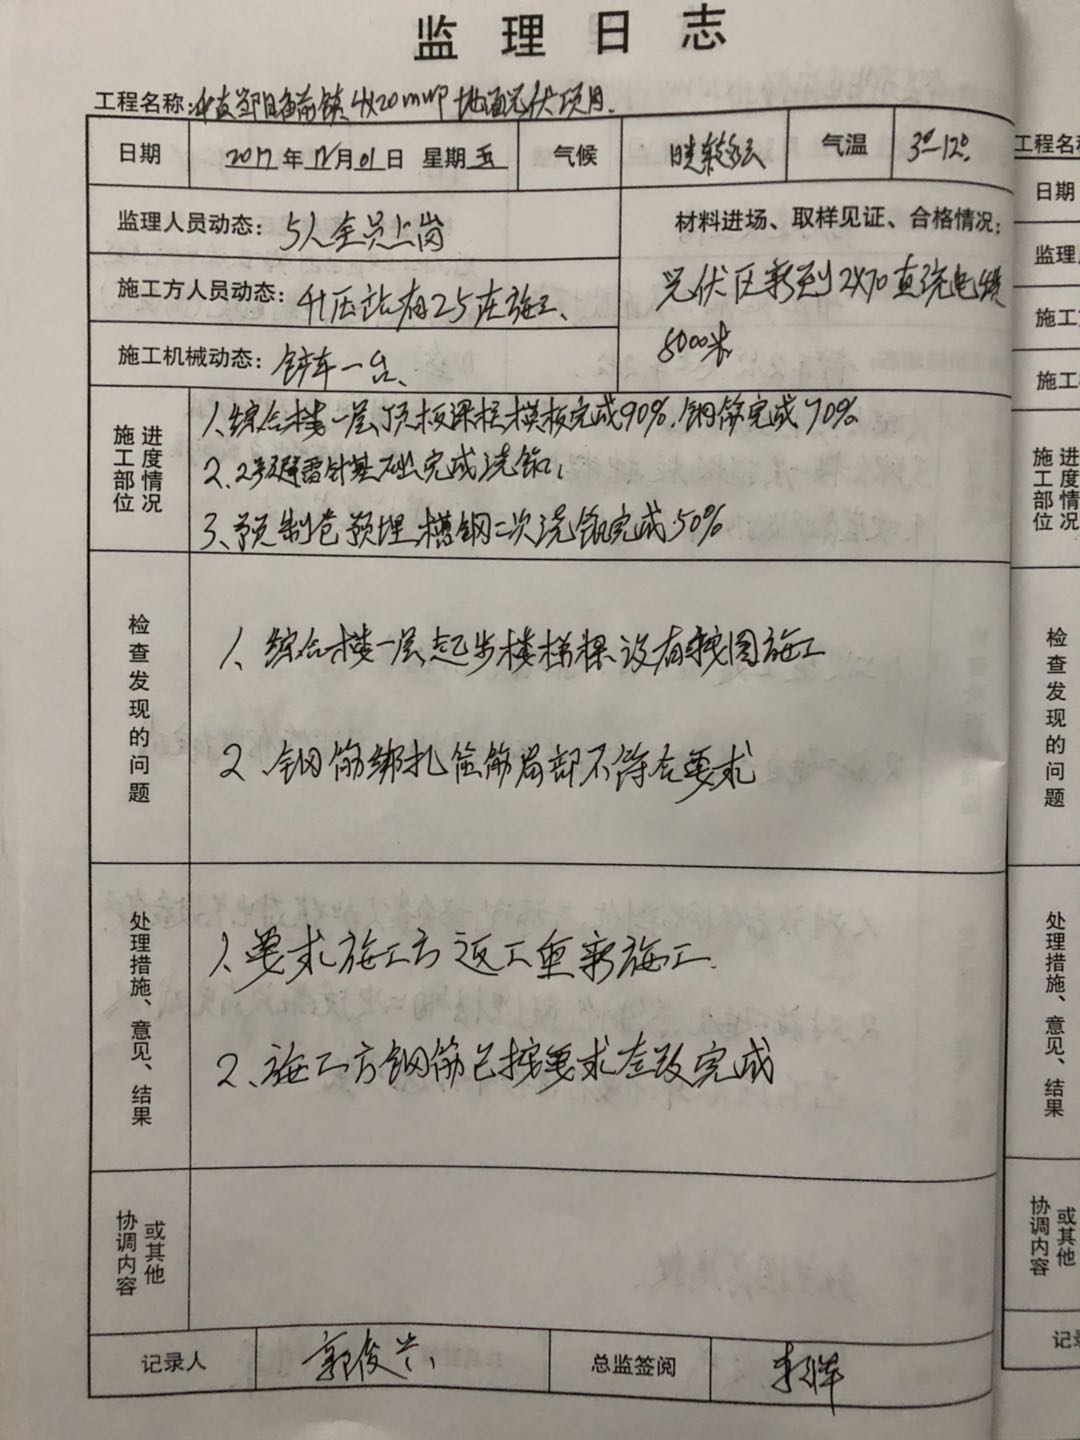 监理日志
工程名称: 4×20mwp地面光伏项目.
日期 2017年12月01日 星期五 气候 气温 3°-12°.
监理人员动态: 5人全员上岗
材料进场、取样见证、合格情况:
光伏区新到2X70直流电缆
5000米
施工方人员动态: 升压站有25在施工、
施工机械动态: 铲车一台、
施工部位进度情况
1、综合楼一层顶板梁柱模板完成90%.钢筋完成70%
2、2号避雷针基础完成浇筑,
3、预制仓预埋槽钢二次浇筑完成50%
检查发现的问题
1、综合楼一层起步楼梯梁没有按图施工
2、钢筋绑扎箍筋局部不符合要求
处理措施、意见、结果
1、要求施工方返工重新施工.
2、施工方钢筋已按要求整改完成
协调内容或其他
记录人 郭俊 总监签阅
工程名称
日期
监理
施工
施工
施工部位进度情况
检查发现的问题
处理措施、意见、结果
协调内容或其他
记录